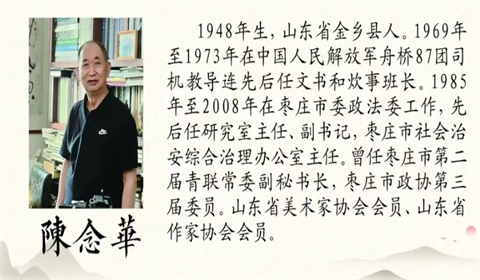 1948年生，山东省金乡县人。1969年
至1973年在中国人民解放军舟桥87团司
机教导连先后任文书和炊事班长。1985
年至2008年在枣庄市委政法委工作，先
后任研究室主任、副书记，枣庄市社会治
安综合治理办公室主任。曾任枣庄市第二
届青联常委副秘书长，枣庄市政协第三
届委员。山东省美术家协会会员、山东省
作家协会会员。
陳念華